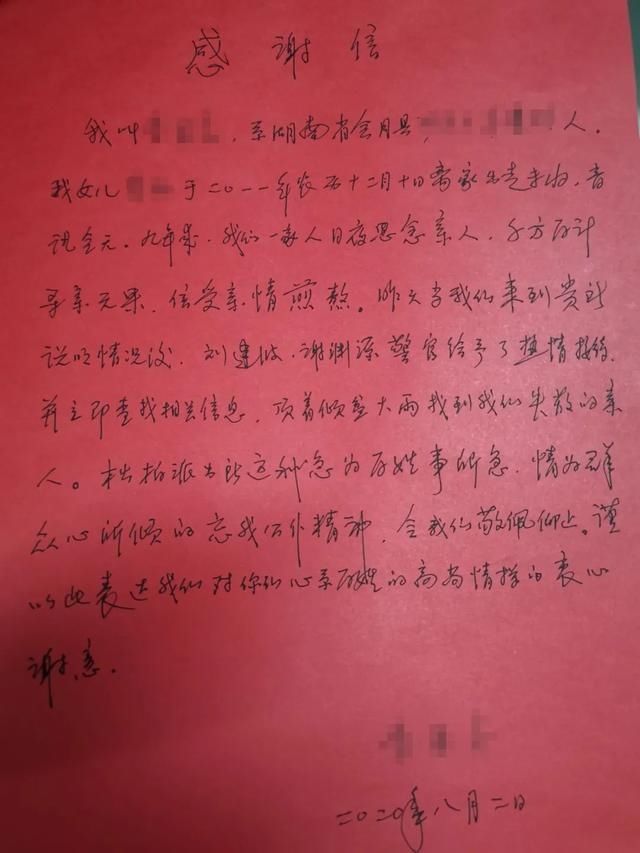 感谢信
我叫，系湖南省会同县人。
我女儿于二〇一一年农历十二月十日离家出走未归，音
讯全无。九年来，我们一家人日夜思念亲人，千方百计
寻亲无果，倍受亲情煎熬。昨天当我们来到贵所
说明情况后，刘建波、谢渊源警官给予了热情接待，
并立即查找相关信息，顶着倾盆大雨找到我们失散的亲
人。派出所这种急为百姓事所急，情为群
众心所倾的忘我公仆精神，令我们敬佩仰止。谨
以此表达我们对你们心系百姓的高尚情操的衷心
谢意。
二〇二〇年八月二日